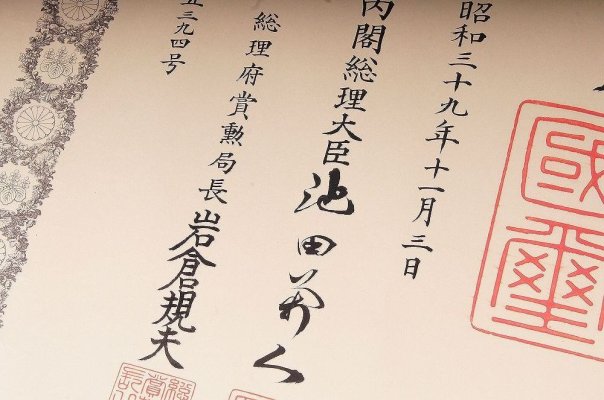 國璽
昭和三十九年十一月三日
内閣総理大臣池田勇人
総理府賞勲局長岩倉規夫
五三九四号